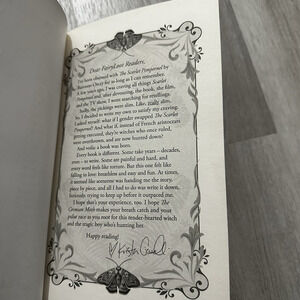 Dear FairyLoot Readers,
I've been obsessed with The Scarlet Pimpernel by
Baroness Orczy for as long as I can remember.
A few years ago, I was craving all things Scarlet
Pimpernel and, after devouring the book, the film,
and the TV show, I went searching for retellings.
Sadly, the pickings were slim. Like, really slim.
So, I decided to write my own to satisfy my craving.
I asked myself: what if I gender swapped The Scarlet
Pimpernel? And what if, instead of French aristocrats
getting executed, they're witches who once ruled,
were overthrown, and are now hunted down?
And voila: a book was born.
Every book is different. Some take years – decades,
even – to write. Some are painful and hard, and
every word feels like torture. But this one felt like
falling in love: breathless and easy and fun. At times,
it seemed like someone was handing me the story
piece by piece, and all I had to do was write it down,
furiously trying to keep up before it outpaced me.
I hope that's your experience, too. I hope The
Crimson Moth makes your breath catch and your
pulse race as you root for this tender-hearted witch
and the magic boy who's hunting her.
Happy reading!
Kristen Ciccarelli